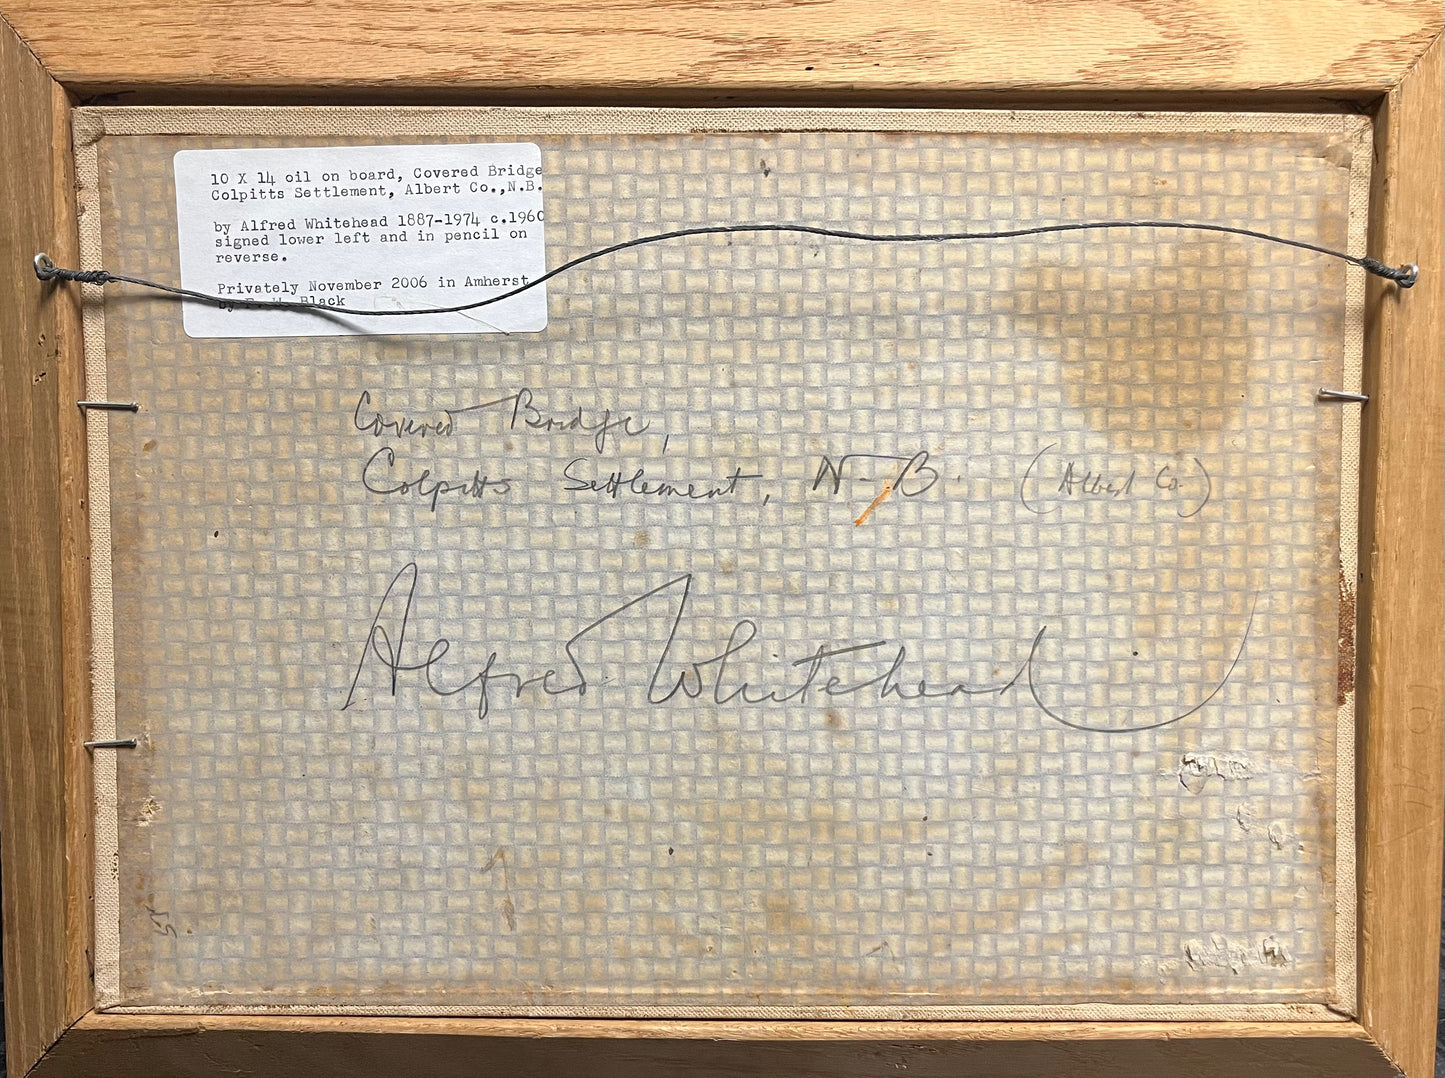 10 X 14 oil on board, Covered Bridge
Colpitts Settlement, Albert Co.,N.B.
by Alfred Whitehead 1887-1974 c.1960
signed lower left and in pencil on
reverse.
Privately November 2006 in Amherst
by F. W. Black
Covered Bridge,
Colpitts Settlement, N-B. (Albert Co.)
Alfred Whitehead